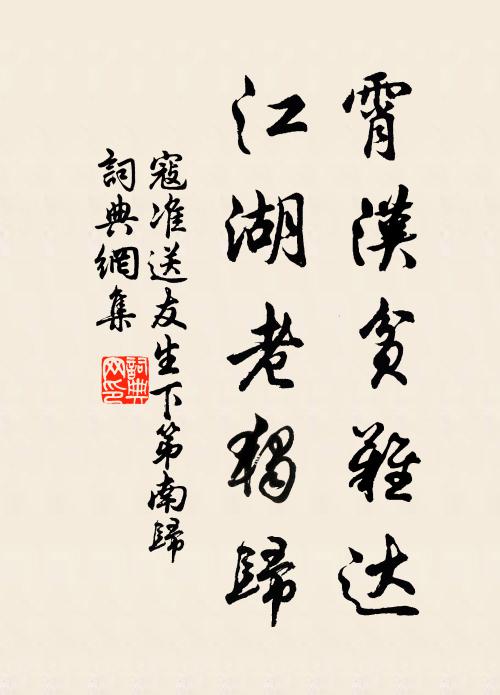 霄漢貧難达
江湖老獨歸
寇准送友生下第南歸
詞典網集
詞典
网印